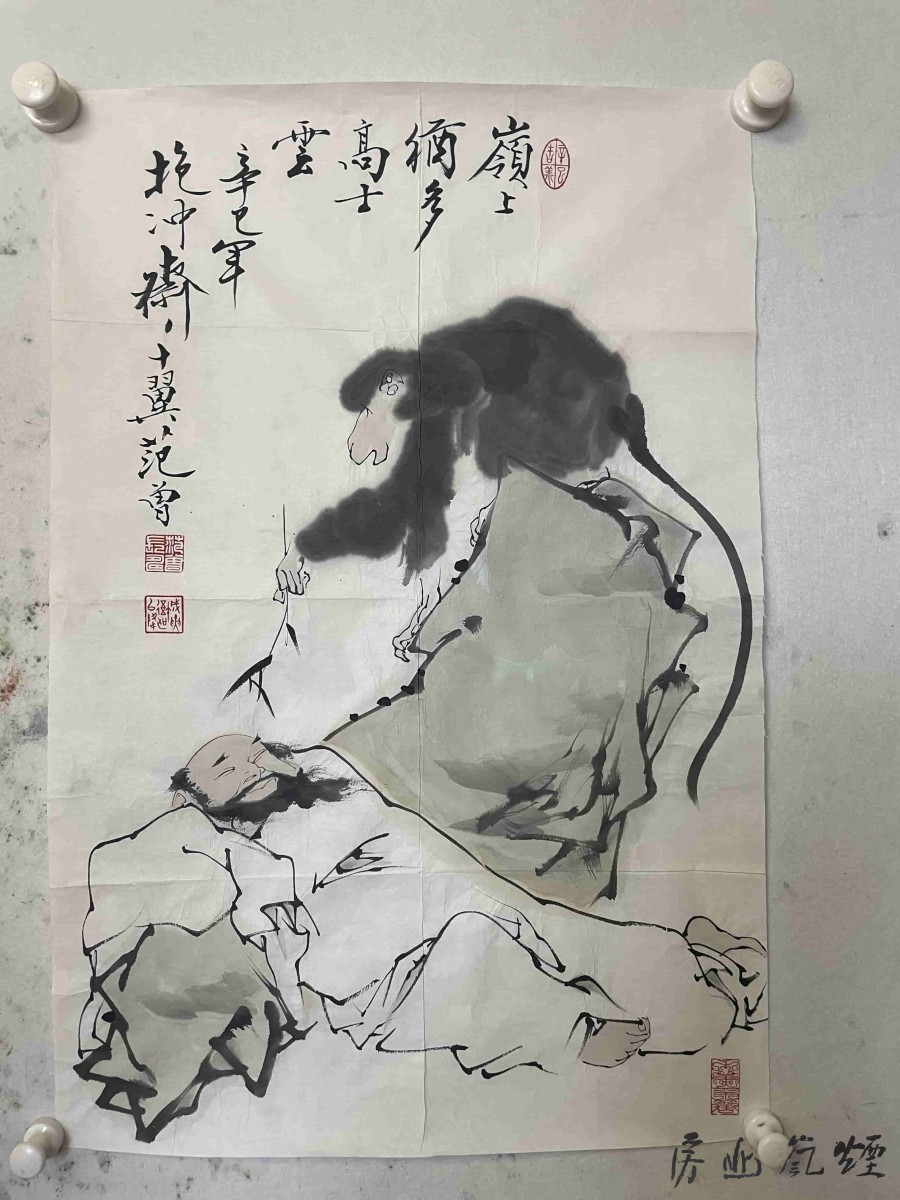 嶺上
猶多
高士
雲
辛巳年
抱冲齋十翼范曾
煙 山房